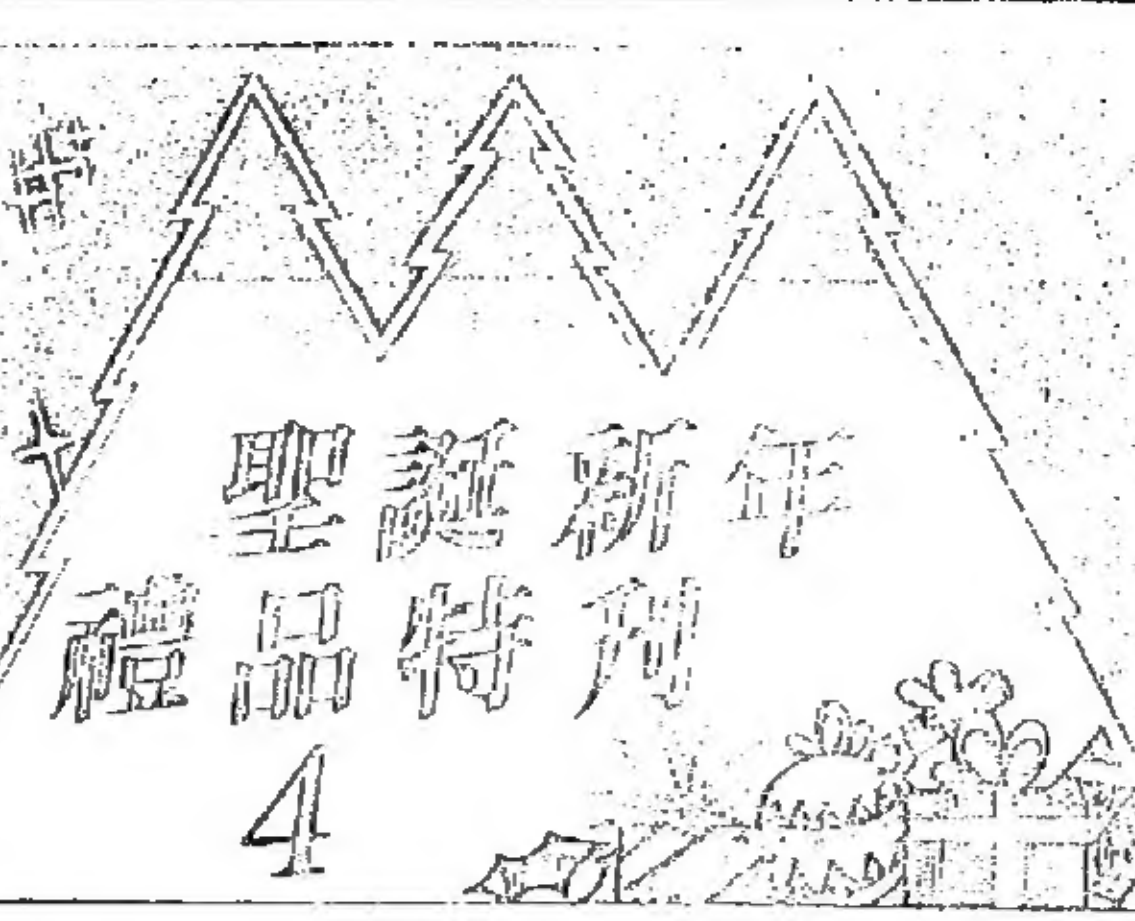 聖誕新年
禮品特刊
4